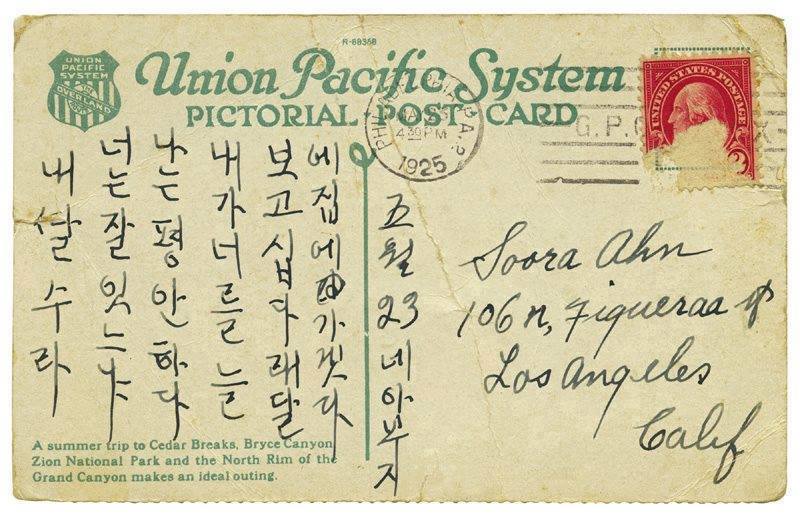 R-68358
UNION PACIFIC SYSTEM
THE OVERLAND ROUTE
Union Pacific System
PICTORIAL POST CARD
4 30 PM
1925
UNITED STATES POSTAGE
내 ᄯᅡᆯ 수라
너는 잘 잇느냐
나는 평안하다
내가 너를 늘
보고 십다 래달
에 집에 가겟다
五월 23 네 아부지
Soora Ahn
106 N, Figueraa St
Los Angeles
Calif
A summer trip to Cedar Breaks, Bryce Canyon,
Zion National Park and the North Rim of the
Grand Canyon makes an ideal outing.